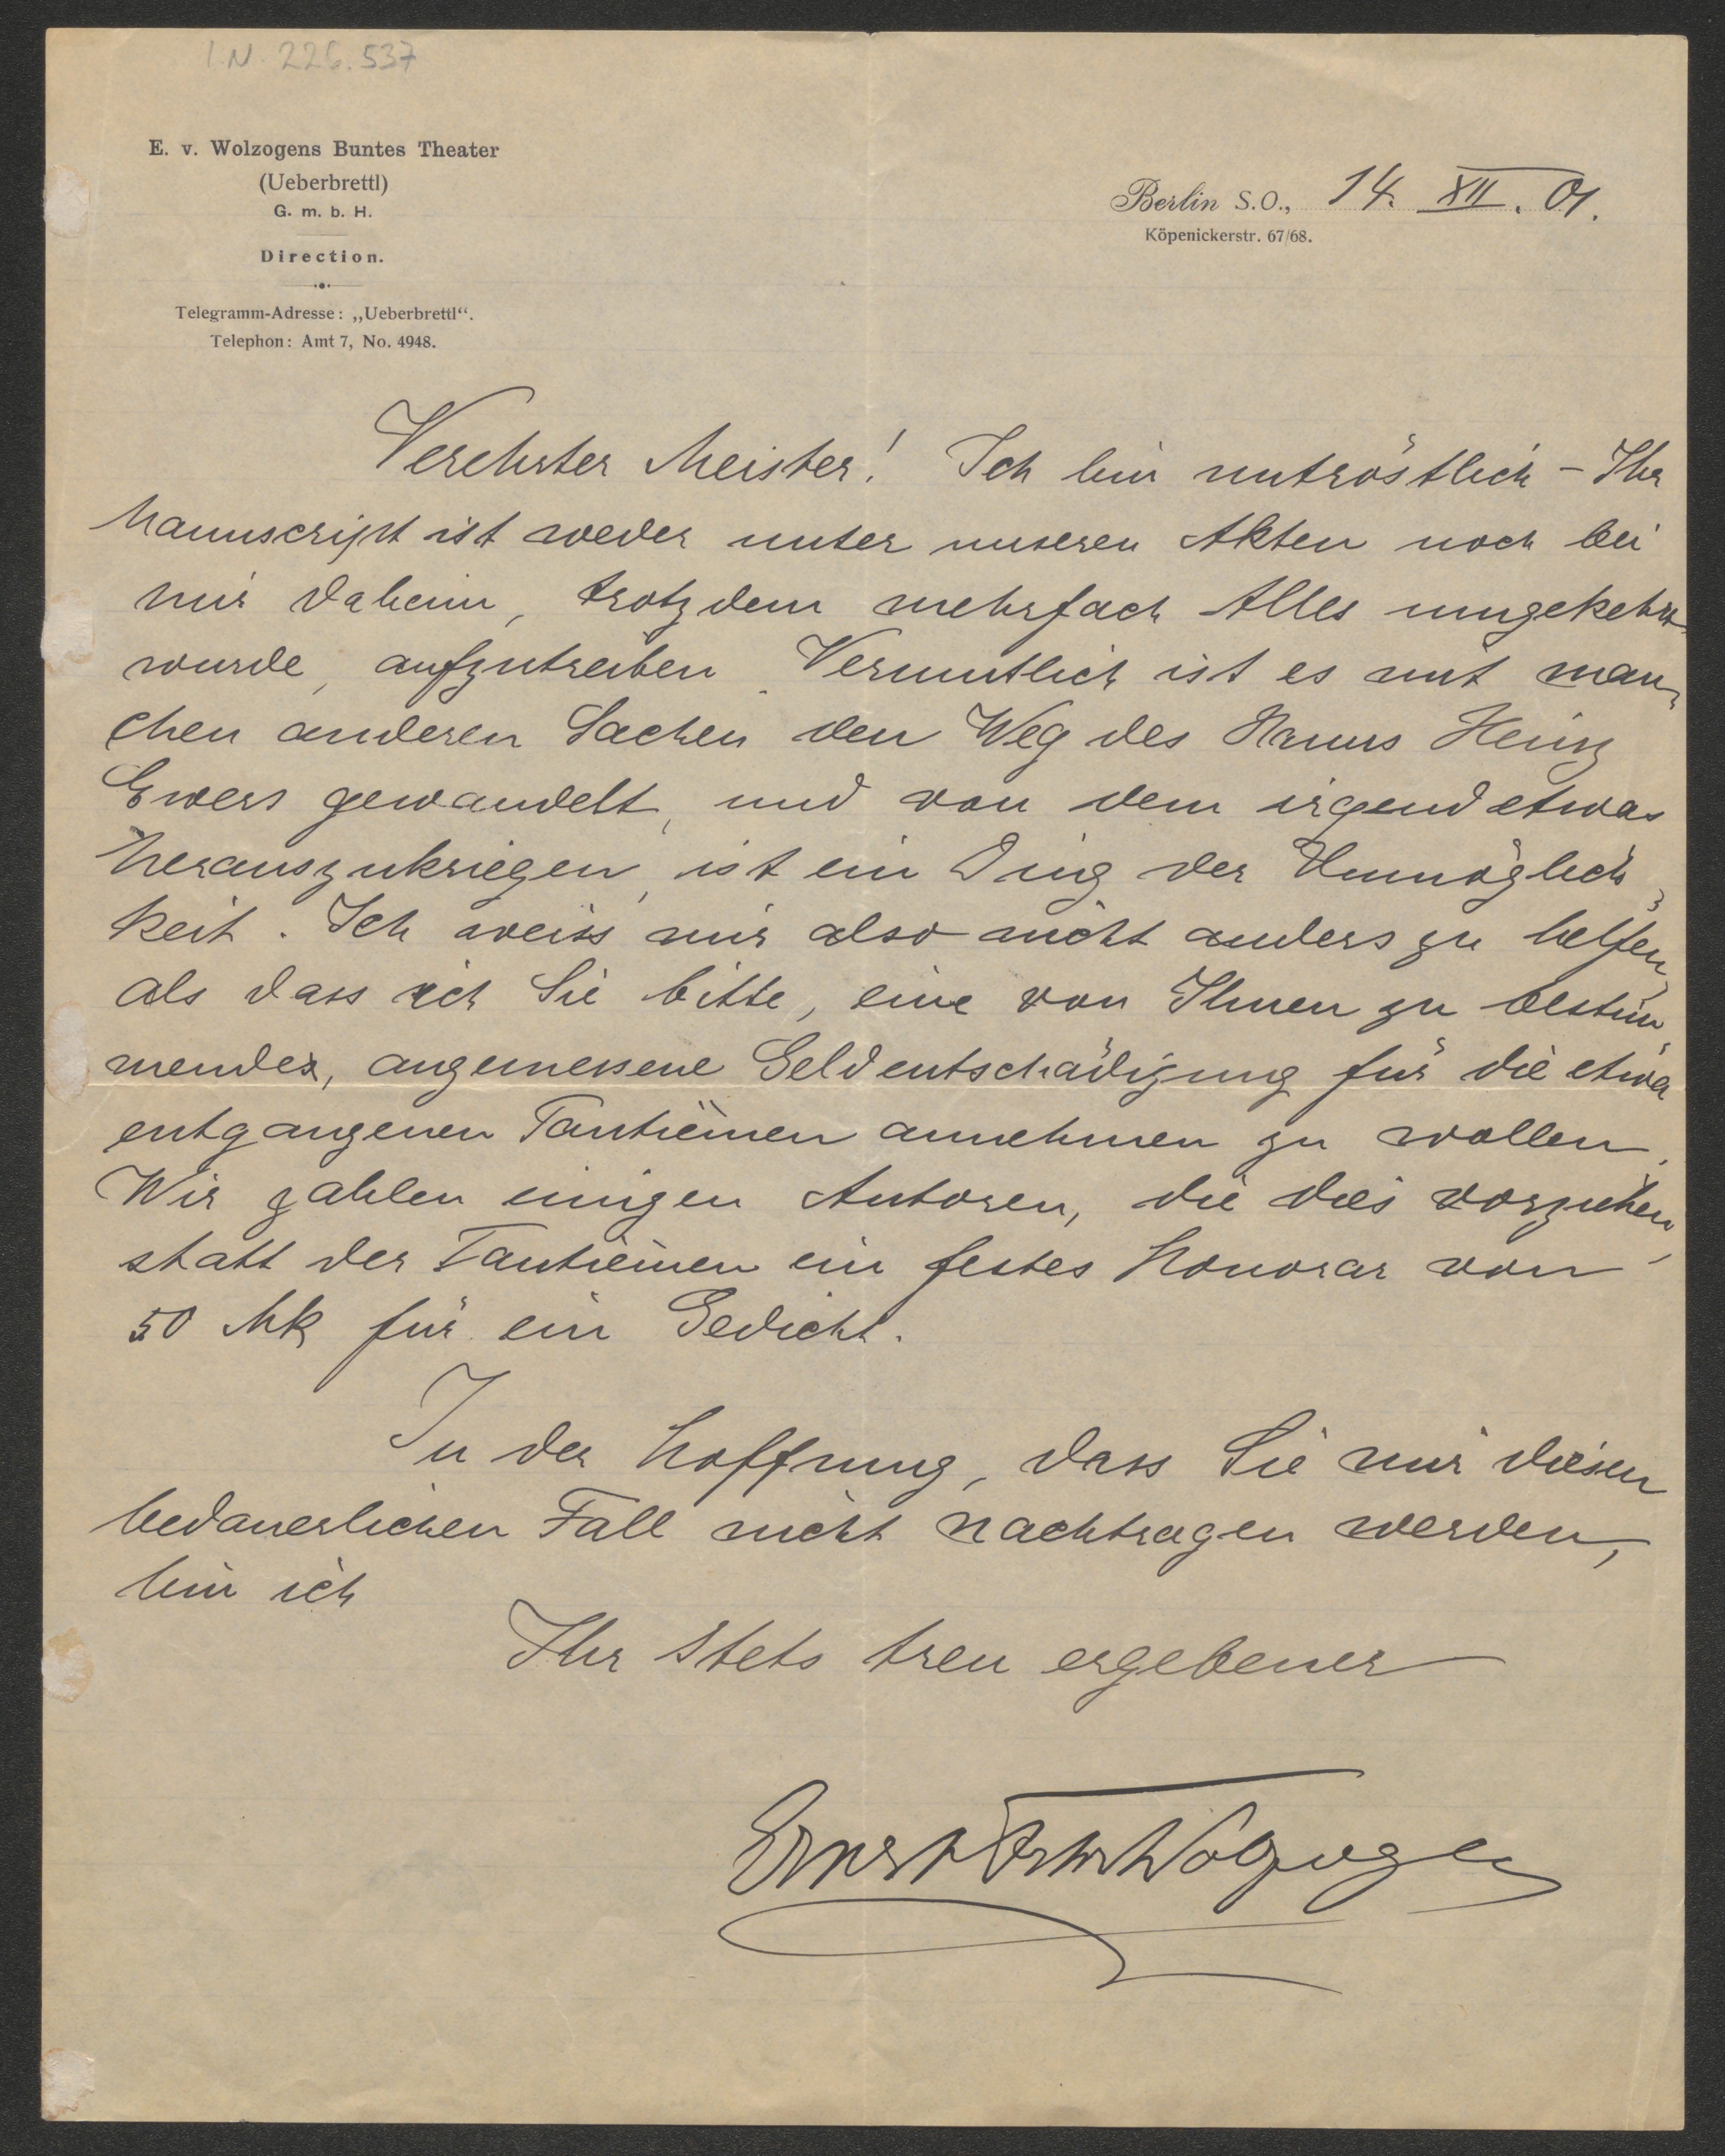 I.N. 226.537
E. v. Wolzogens Buntes Theater
(Ueberbrettl)
G. m. b. H.
Direction.
Telegramm-Adresse: „Ueberbrettl“.
Telephon: Amt 7, No. 4948.
Berlin S.O., 14. XII. 01.
Köpenickerstr. 67/68.
Verehrter Meister! Ich bin untröstlich – Ihr
Manuscript ist weder unter unseren Akten noch bei
mir daheim, trotzdem mehrfach Alles umgekehrt
wurde, aufzutreiben. Vermutlich ist es mit man-
chen anderen Sachen den Weg des Hanns Heinz
Ewers gewandelt, und von dem irgend etwas
herauszukriegen, ist ein Ding der Unmöglich-
keit. Ich weiss mir also nicht anders zu helfen,
als dass ich Sie bitte, eine von Ihnen zu bestim-
mende, angemessene Geldentschädigung für die etwa
entgangenen Tantièmen annehmen zu wollen.
Wir zahlen einigen Autoren, die dies vorziehen,
statt der Tantièmen ein festes Honorar von
50 Mk für ein Gedicht.
In der Hoffnung, dass Sie mir diesen
bedauerlichen Fall nicht nachtragen werden,
bin ich
Ihr stets treu ergebener
Ernst Frhr v Wolzogen